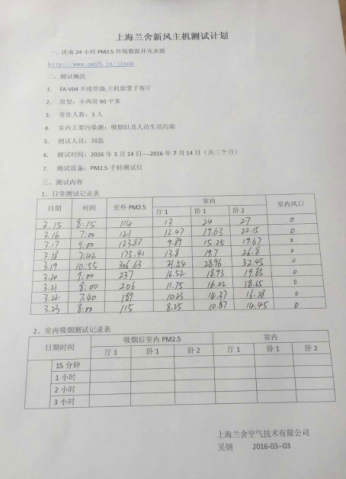 上海兰舍新风主机测试计划
一、济南 24 小时 PM2.5 环境数据补充来源
http://www.pm25.in/jinan
二、测试概况
1. FA-V04 不接管道,主机放置于客厅
2. 房型:小两房 90 平米
3. 常住人数:3 人
4. 室内主要污染源:吸烟以及人员生活污染
5. 测试人员:
6. 测试时间:2016 年 3 月 14 日---2016 年 7 月 14 日
7. 测试设备:PM2.5 手持测试仪
三、测试内容
1、日常测试记录表
日期 时间 室外 PM2.5 室内 室内风口
厅 1 卧 1 卧 2
3.15 8:15 114 13 24 27 0
3.16 7:00 121 12.47 19.63 22.15 0
3.17 9:00 123.87 9.89 15.25 19.67 0
3.18 7:42 175.41 13.8 19.7 26.8 0
3.19 10:55 306.63 21.54 28.96 32.45 0
3.20 9:00 237 16.52 18.93 19.85 0
3.21 8:00 206 11.75 16.02 18.65 0
3.22 7:40 189 10.23 14.27 16.28 0
3.23 8:00 115 8.25 10.87 14.45 0
2、室内吸烟测试记录表
日期时间 吸烟后室内 PM2.5 室内
厅 1 卧 1 卧 2 厅 1 卧 1 卧 2
15 分钟
1 小时
2 小时
3 小时
上海兰舍空气技术有限公司
吴钢 2016-03--03